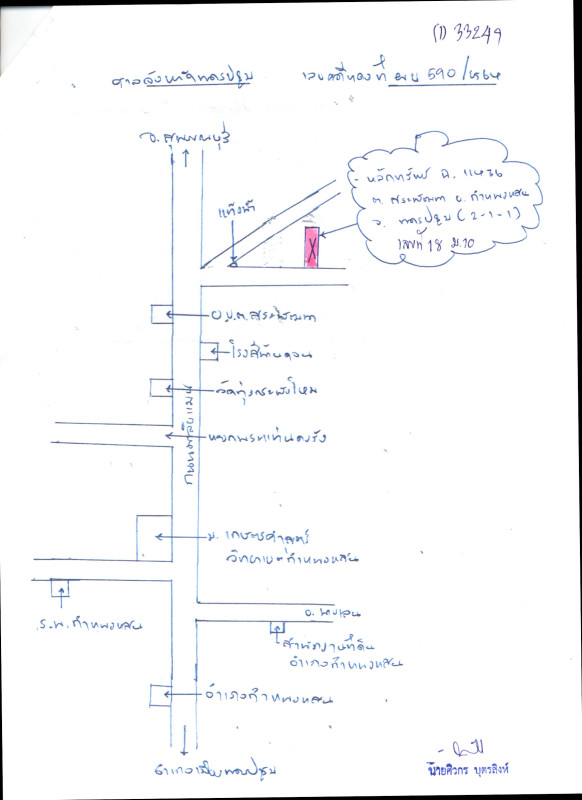 (1) 33249
ศาลจังหวัดนครปฐม เลขคดีหมายที่ ผบ 590/
อ. สุพรรณบุรี
- หลักทรัพย์ ฉ.
ต. สระพัฒนา อ. กำแพงแสน
จ. นครปฐม (2-1-1)
เลขที่ 18 ม.10
แท๊งน้ำ
X
อ.บ.ต. สระพัฒนา
โรงสี
วัดทุ่งกระพังโหม
แยกพระแท่นดงรัง
ถนนมาลัยแมน
ม. เกษตรศาสตร์
วิทยาเขตกำแพงแสน
ร.พ. กำแพงแสน
อ. บางเลน
สำนักงานที่ดิน
อำเภอกำแพงแสน
อำเภอกำแพงแสน
อำเภอเมืองนครปฐม
นายศิวกร บุตรสิงห์